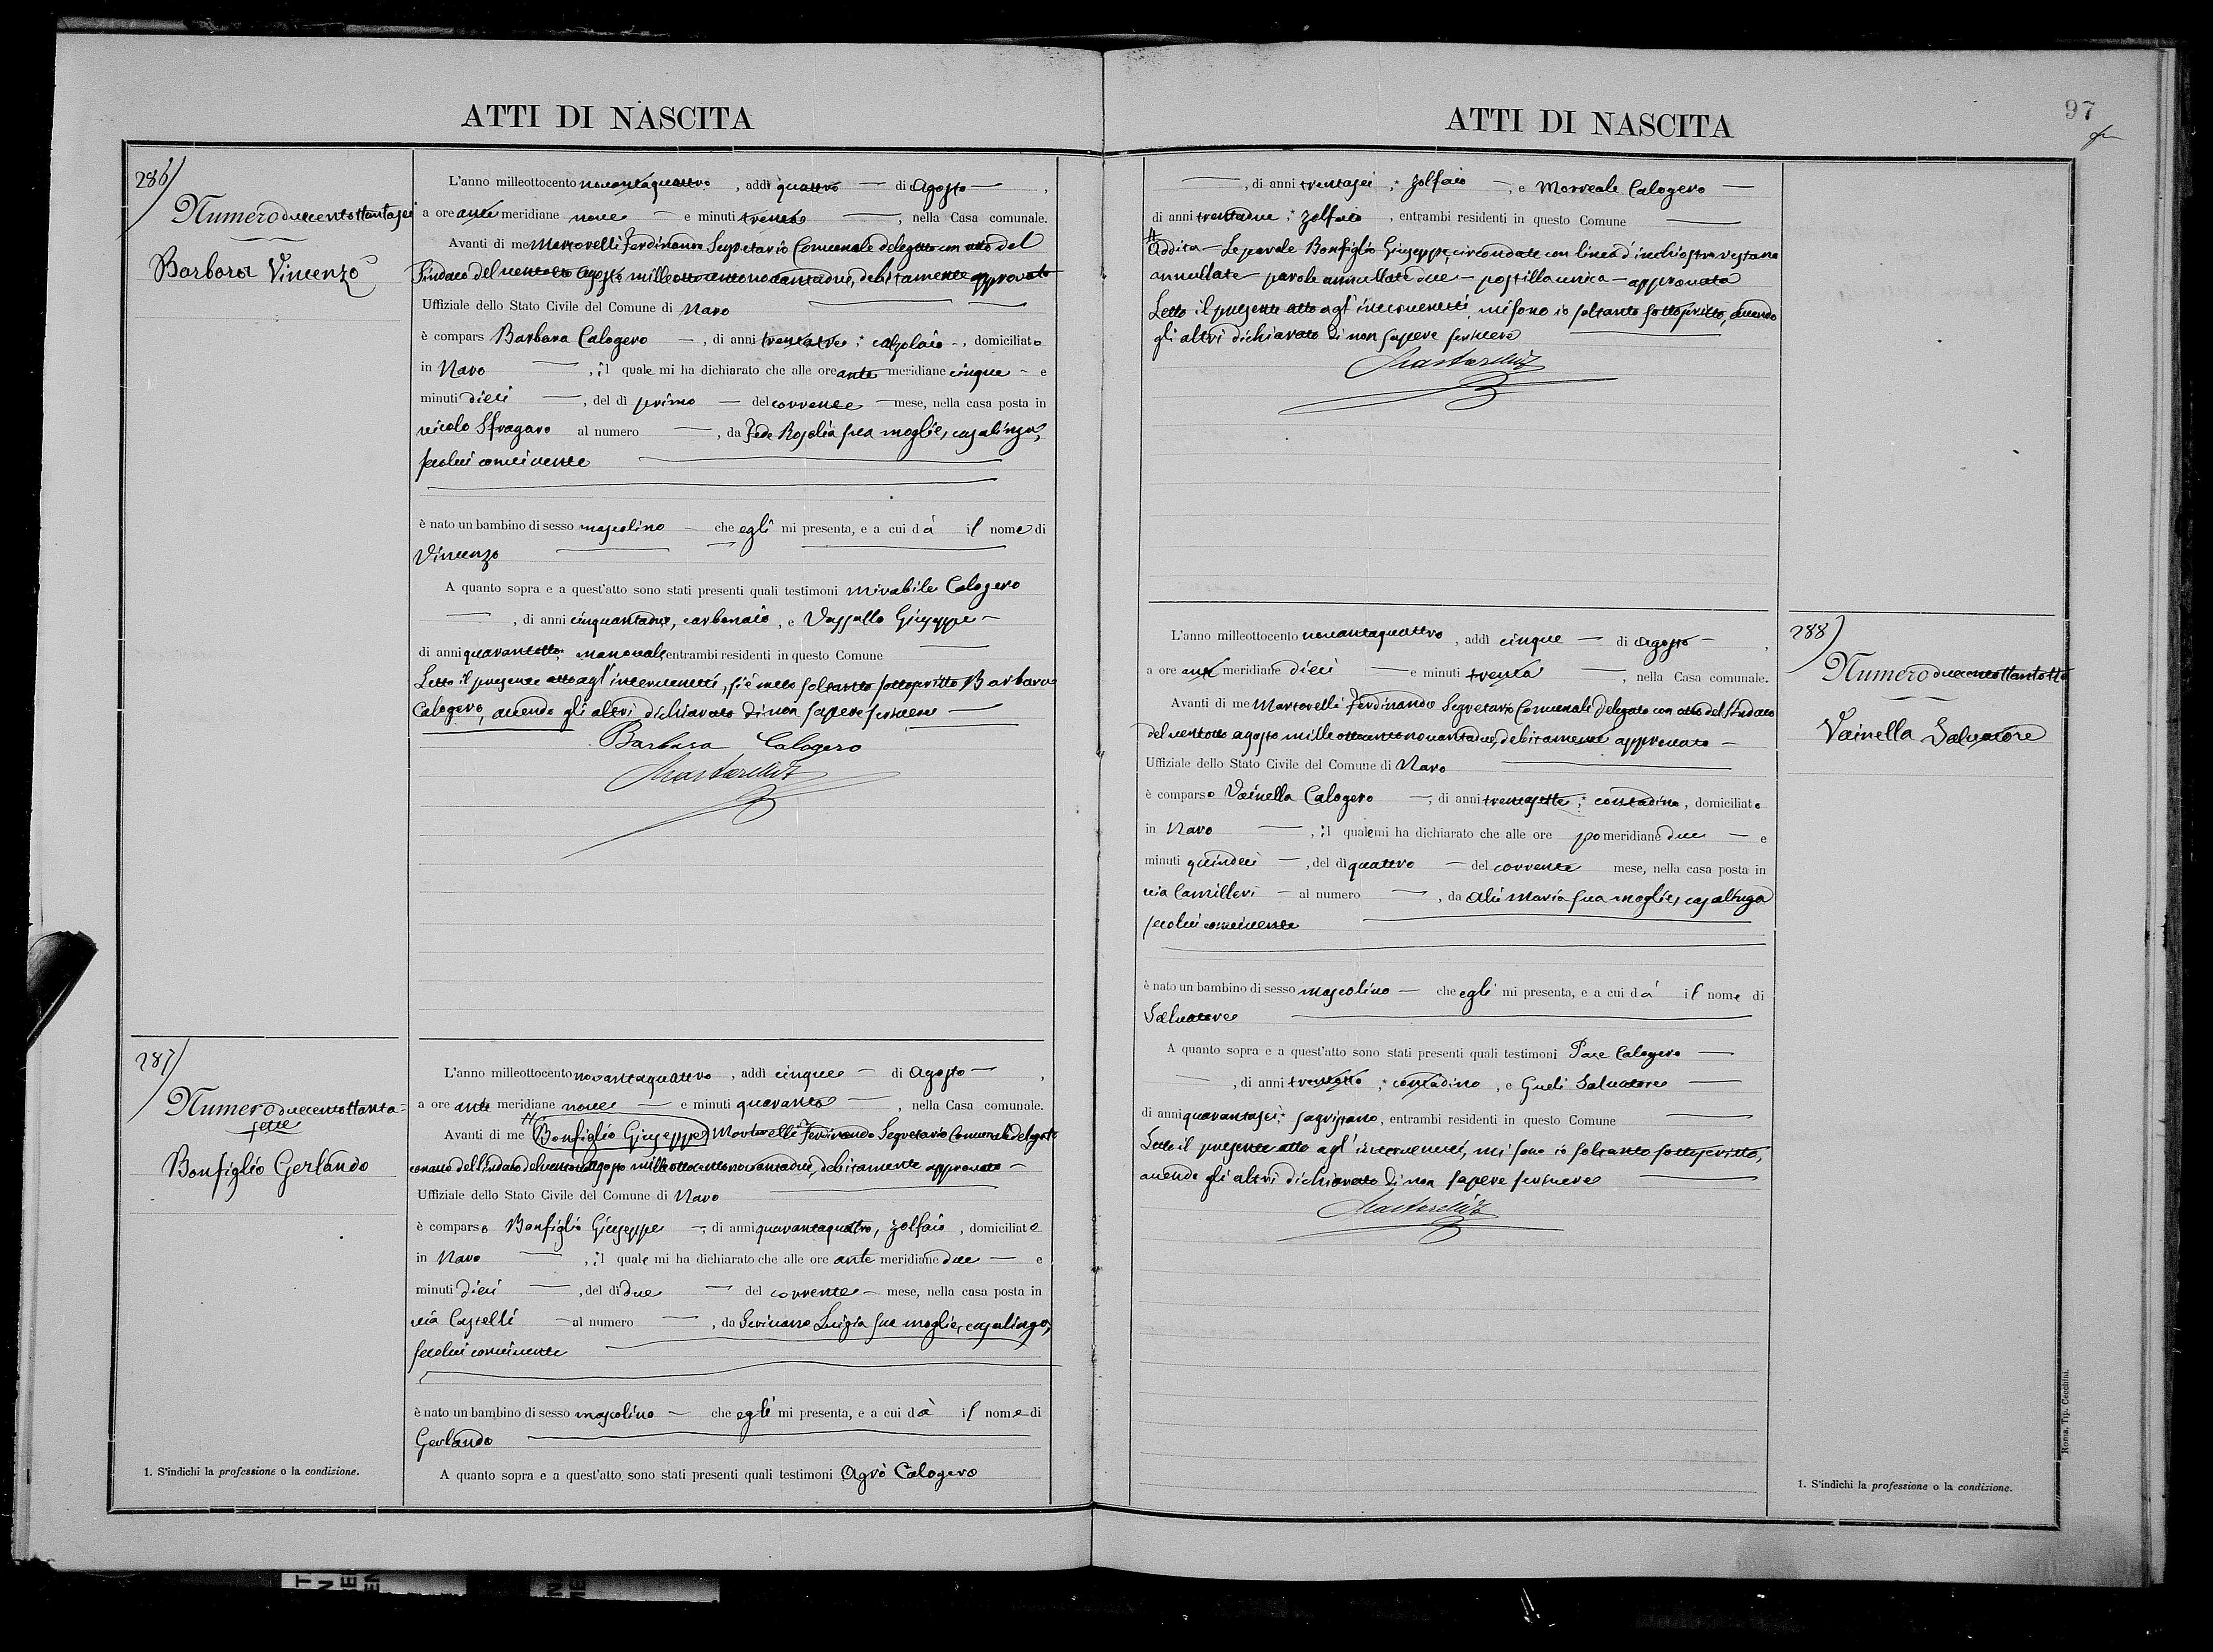 ATTI DI NASCITA
286
Numero duecentottantasei
Barbara Vincenzo
L'anno milleottocento novantaquattro, addì quattro — di Agosto —,
a ore ante meridiane nove — e minuti trenta —, nella Casa comunale.
Avanti di me Martorelli Ferdinando Segretario Comunale delegato con atto del
Sindaco del ventotto Agosto milleottocentonovantadue, debitamente approvato
Uffiziale dello Stato Civile del Comune di Naro
è compars Barbara Calogero —, di anni trentatre, calzolaio —, domiciliato
in Naro —, il quale mi ha dichiarato che alle ore ante meridiane cinque — e
minuti dieci —, del dì primo — del corrente — mese, nella casa posta in
vicolo Sfragaro al numero —, da Fede Rosalia sua moglie, casalinga,
secolui convivente
è nato un bambino di sesso mascolino — che egli mi presenta, e a cui dà il nome di
Vincenzo
A quanto sopra e a quest'atto sono stati presenti quali testimoni Mirabile Calogero
—, di anni cinquantadue, carbonaio, e Vassallo Giuseppe —
di anni quarantotto, manovale, entrambi residenti in questo Comune —
Letto il presente atto agl'intervenuti, si è meco soltanto sottoscritto Barbara
Calogero, avendo gli altri dichiarato di non sapere scrivere —
Barbara Calogero
Martorelli
287
Numero duecentottanta=
sette
Bonfiglio Gerlando
L'anno milleottocento novantaquattro, addì cinque — di Agosto —,
a ore ante meridiane nove — e minuti quaranta —, nella Casa comunale.
Avanti di me # Bonfiglio Giuseppe Martorelli Ferdinando Segretario Comunale delegato
con atto del Sindaco del ventotto Agosto milleottocentonovantadue, debitamente approvato —
Uffiziale dello Stato Civile del Comune di Naro
è comparso Bonfiglio Giuseppe —, di anni quarantaquattro, zolfaio, domiciliato
in Naro —, il quale mi ha dichiarato che alle ore ante meridiane due — e
minuti dieci —, del dì due — del corrente — mese, nella casa posta in
via Castelli — al numero —, da Luigia sua moglie, casalinga,
secolui convivente
è nato un bambino di sesso mascolino — che egli mi presenta, e a cui dà il nome di
Gerlando
A quanto sopra e a quest'atto sono stati presenti quali testimoni Agrò Calogero
1. S'indichi la professione o la condizione.
ATTI DI NASCITA
97
—, di anni trentasei, zolfaio —, e Morreale Calogero —
di anni trentadue, zolfaio, entrambi residenti in questo Comune —
# Addita — Le parole Bonfiglio Giuseppe, circondate con linea d'inchiostro restano
annullate — parole annullate due — postilla unica — approvata
Letto il presente atto agl'intervenuti, mi sono io soltanto sottoscritto, avendo
gli altri dichiarato di non sapere scrivere
Martorelli
288
Numero duecentottantotto
Vainella Salvatore
L'anno milleottocento novantaquattro, addì cinque — di Agosto —,
a ore ante meridiane dieci — e minuti trenta —, nella Casa comunale.
Avanti di me Martorelli Ferdinando Segretario Comunale delegato con atto del Sindaco
del ventotto agosto milleottocentonovantadue, debitamente approvato —
Uffiziale dello Stato Civile del Comune di Naro
è comparso Vainella Calogero —, di anni trentasette, contadino, domiciliato
in Naro —, il quale mi ha dichiarato che alle ore pomeridiane due — e
minuti quindici —, del dì quattro — del corrente mese, nella casa posta in
via Camilleri — al numero —, da Alù Maria sua moglie, casalinga
secolui convivente
è nato un bambino di sesso mascolino — che egli mi presenta, e a cui dà il nome di
Salvatore
A quanto sopra e a quest'atto sono stati presenti quali testimoni Pace Calogero —
—, di anni trentotto, contadino, e Gueli Salvatore —
di anni quarantasei, sagristano, entrambi residenti in questo Comune —
Letto il presente atto agl'intervenuti, mi sono io soltanto sottoscritto,
avendo gli altri dichiarato di non sapere scrivere
Martorelli
1. S'indichi la professione o la condizione.
Roma, Tip. Cecchini.